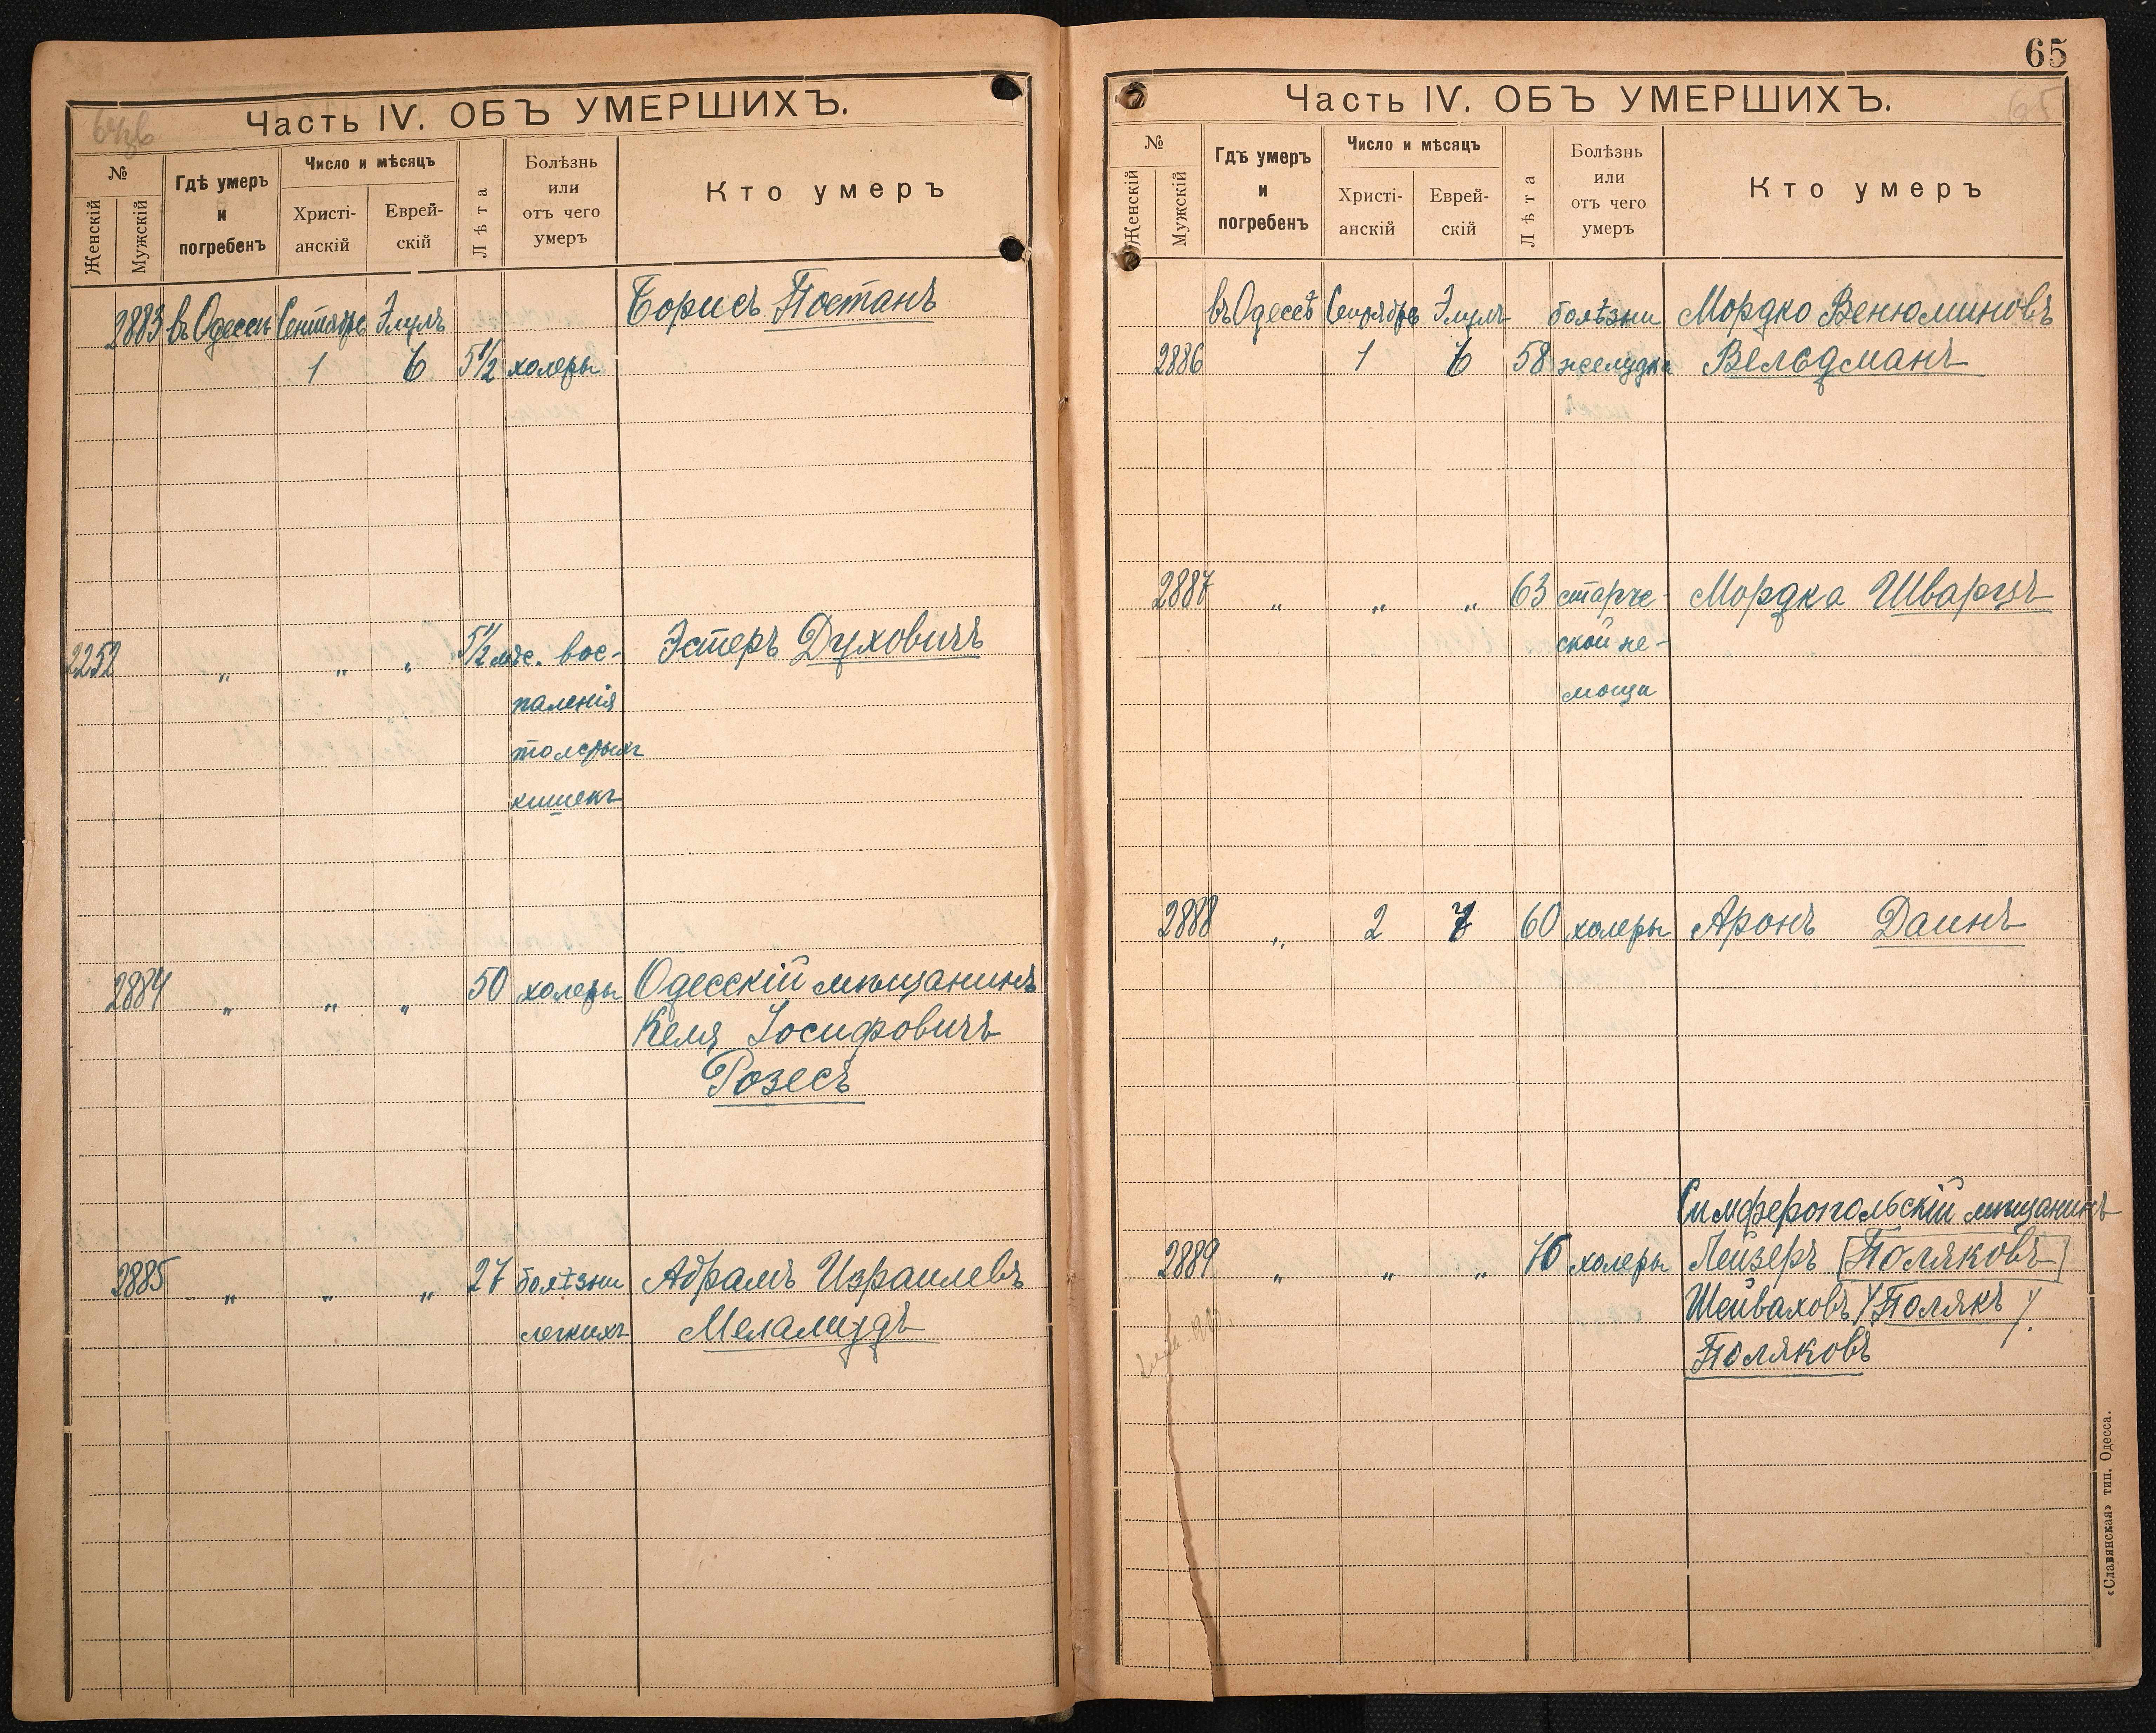 Часть IV. ОБЪ УМЕРШИХЪ.
№
Женскій
Мужскій
Гдѣ умеръ
и
погребенъ
Число и мѣсяцъ
Христі-
анскій
Еврей-
скій
Лѣта
Болѣзнь
или
отъ чего
умеръ
Кто умеръ
2883 въ Одессѣ Сентябрь Элулъ Борисъ Постанъ
1 6 5 1/2 холеры
2252 „ „ „ 5 1/2 мѣс. вос- Эстеръ Духовичъ
паленія
толстыхъ
кишекъ
2884 „ „ „ 50 холеры Одесскій мѣщанинъ
Келя Іосифовичъ
Розесъ
2885 „ „ „ 27 болѣзни Абрамъ Израилевъ
легкихъ Меламудъ
65
Часть IV. ОБЪ УМЕРШИХЪ.
65
№
Женскій
Мужскій
Гдѣ умеръ
и
погребенъ
Число и мѣсяцъ
Христі-
анскій
Еврей-
скій
Лѣта
Болѣзнь
или
отъ чего
умеръ
Кто умеръ
въ Одессѣ Сентябрь Элулъ болѣзни Мордко Венюминовъ
2886 1 6 58 желудка Вельдманъ
2887 „ „ „ 63 старче- Мордка Шварцъ
ской не-
мощи
2888 „ 2 7 60 холеры Аронъ Даинъ
Симферопольскій мѣщанинъ
2889 „ „ „ 76 холеры Лейзеръ [Поляковъ]
Шейваховъ / Полякъ /.
Поляковъ
«Славянская» тип. Одесса.